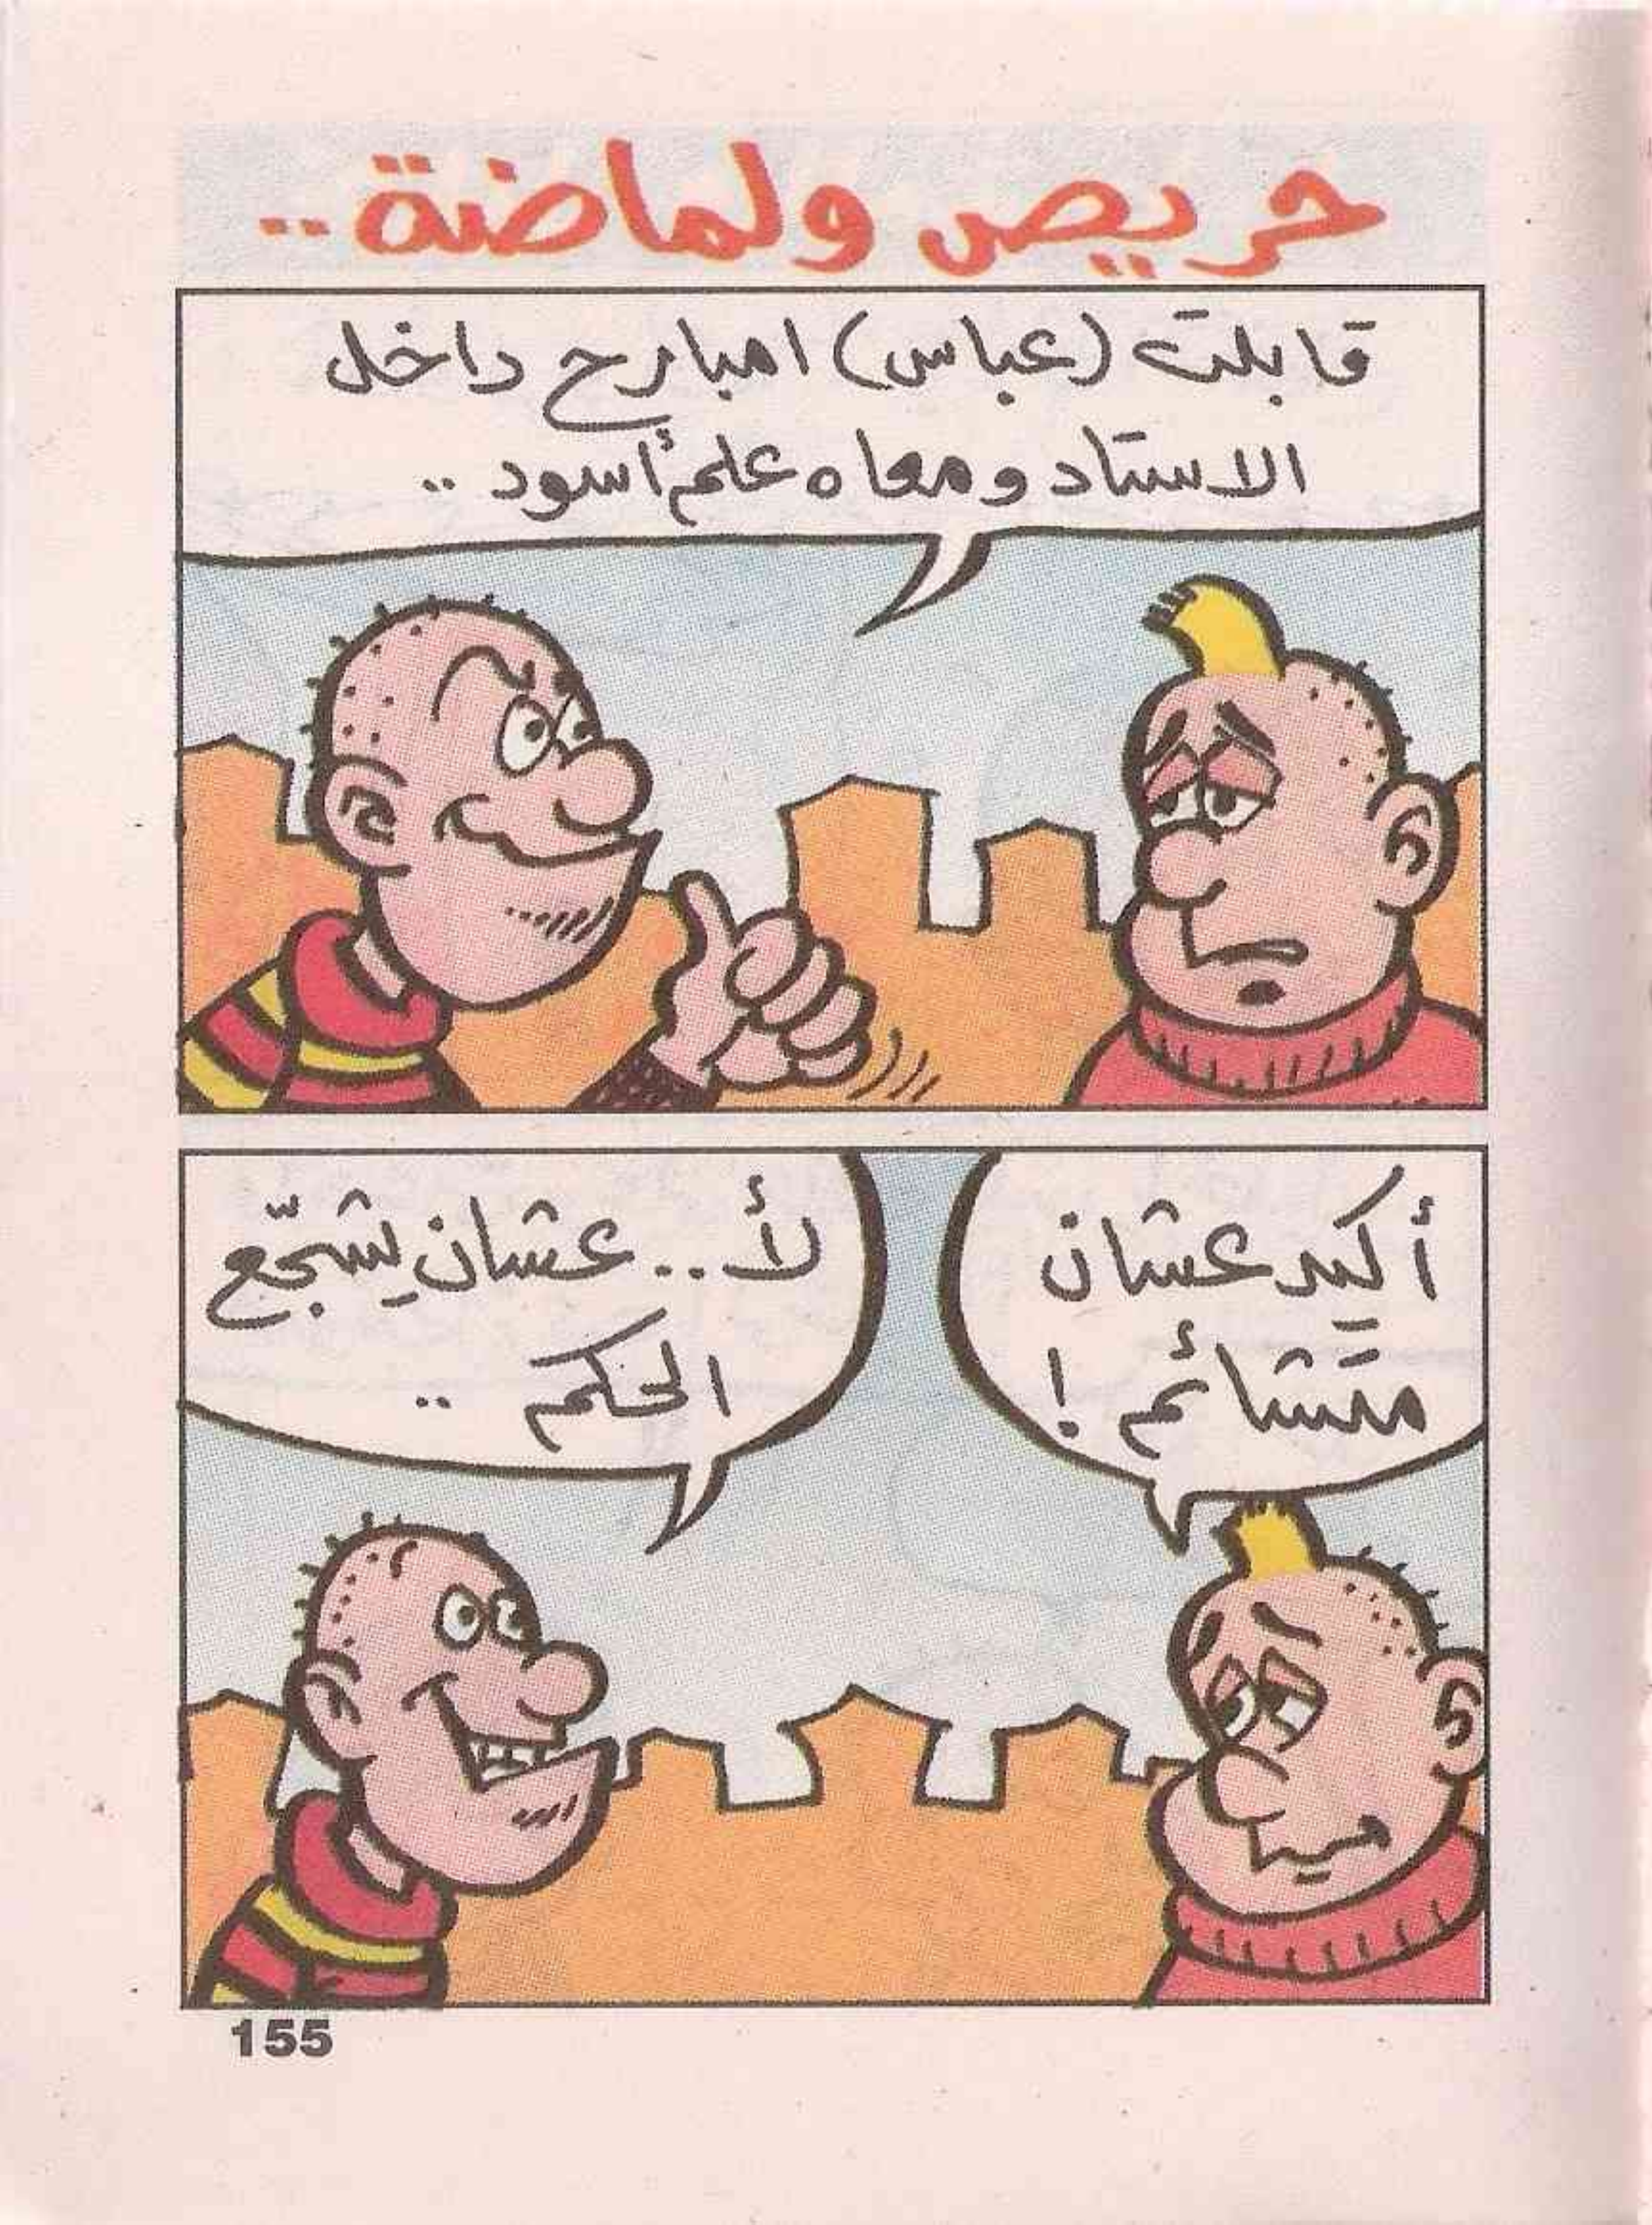 حريص ولماضة..
قابلت (عباس) امبارح داخل
الاستاد ومعاه علم أسود ..
أكيد عشان
متشائم !
لأ .. عشان يشجّع
الحكم ..
155